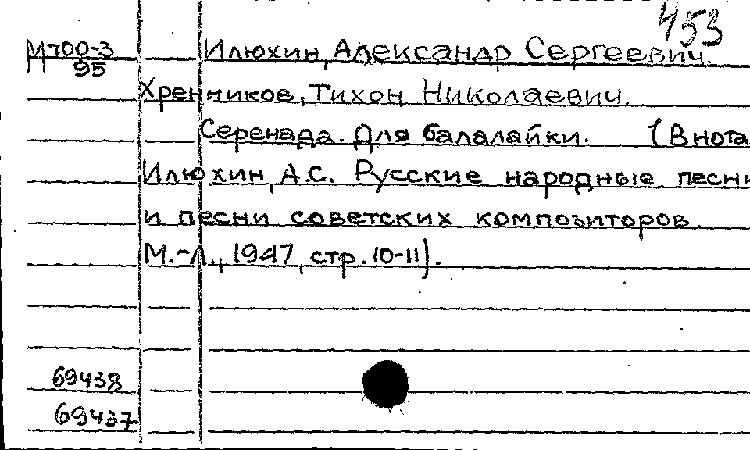 453
М700-3
95
Илюхин, Александр Сергеевич.
Хренников, Тихон Николаевич.
Серенада. Для балалайки. (В нота
Илюхин, А.С. Русские народные песни
и песни советских композиторов
М.-Л., 1947, стр. 10-11).
69438
69437